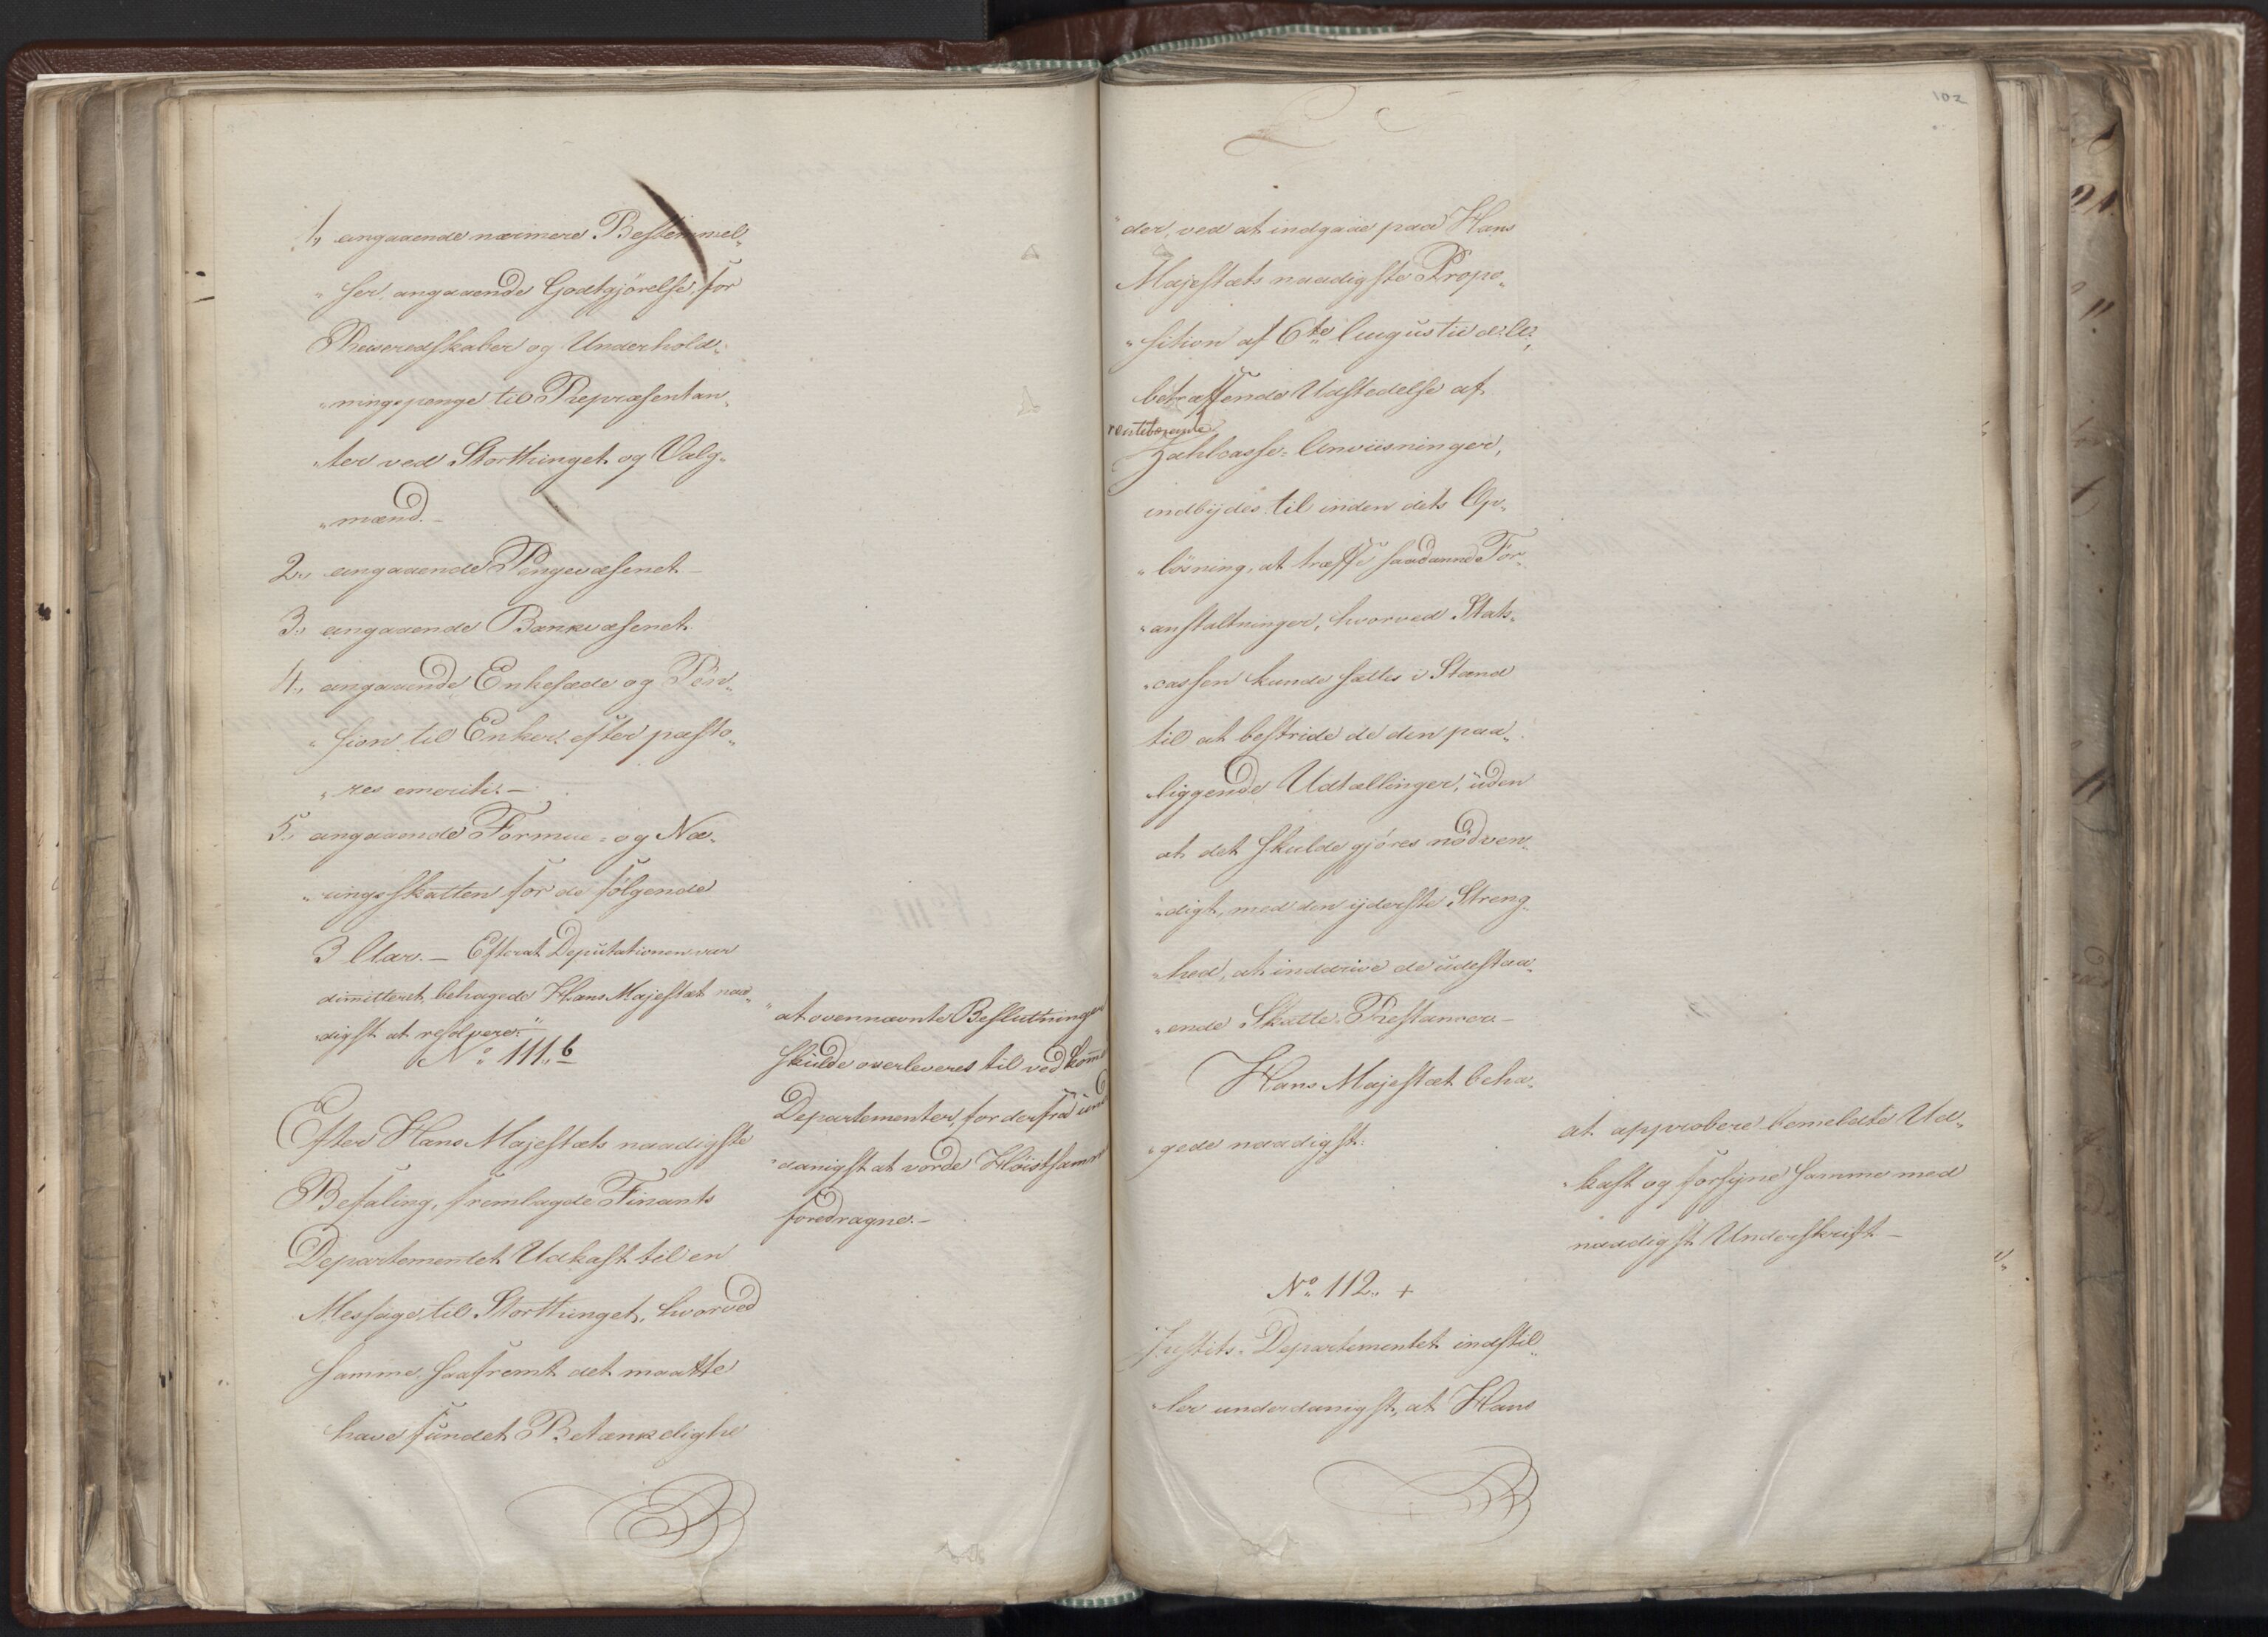 1, angaaende nærmere Bestemmel„
„ser, angaaende Godtgjörelse for
Reiseredskaber og Underhold„
„ningspenge til Repræsentan„
„ter ved Storthinget og Valg„
„mænd.—
2., angaaende Pengevæsenet—
3., angaaende Bankvæsenet.
4., angaaende Enkesæde og Pen„
„sion til Enker efter pasto„
„res emeriti.—
5., angaaende Formue- og Næ„
„ringsskatten for de følgende
3 Aar.— Efterat Deputationen var
dimitteret, behagede Hans Majestæt naa„
„digst at resolvere:
No 111.b
Efter Hans Majestæts naadigste
Befaling, fremlagde Finants
Departementet Udkast til en
Message til Storthinget, hvorved
samme, saafremt det maatte
have fundet Betænkelighe
„at ovennævnte Beslutninger
skulde overleveres til vedkomm
Departementer, for derfra und
„danigst at vorde Höistsamme
foredragne.—
102
„der, ved at indgaae paa Hans
Majestæts naadigste Propo„
„sition af 6te Augusti d: A:,
betræffende Udstedelse af
rentebærende
Zahlcasse-Anviisninger,
indbydes til inden dets Op„
„lösning, at træffe saadanne For„
„anstaltninger, hvorved Stats„
„cassen kunde sættes i Stand
til at bestride de den paa„
„liggende Udtællinger, uden
at det skulde gjöres nödven„
„digt, med den yderste Streng„
„hed, at inddrive de udestaa„
„ende Skatte-Restancer—
Hans Majestæt beha„
„gede naadigst:
at approbere bemeldte Ud„
„kast og forsyne samme med
naadigst Underskrift—
No 112., +
Justits-Departementet indstil„
„ler underdanigst, at Hans